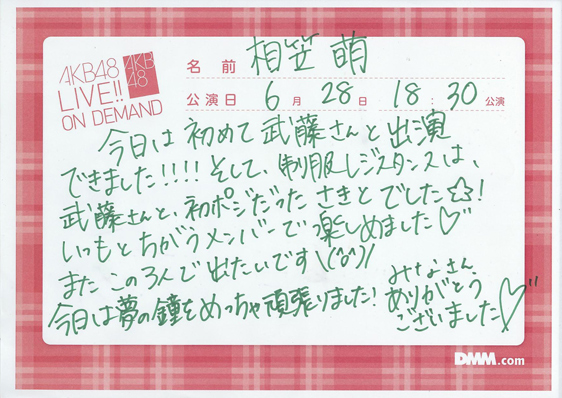 AKB48
LIVE!!
ON DEMAND
AKB
48
名前 相笠 萌
公演日 6月 28日 18:30公演
今日は初めて武藤さんと出演
できました!!!!そして、制服レジスタンスは、
武藤さんと、初ポジだったさきとでした☆!
いつもとちがうメンバーで楽しめました♡"
またこの3人で出たいです\(^o^)/
今日は夢の鐘をめっちゃ頑張りました!
みなさん
ありがとう
ございました♡"
DMM.com